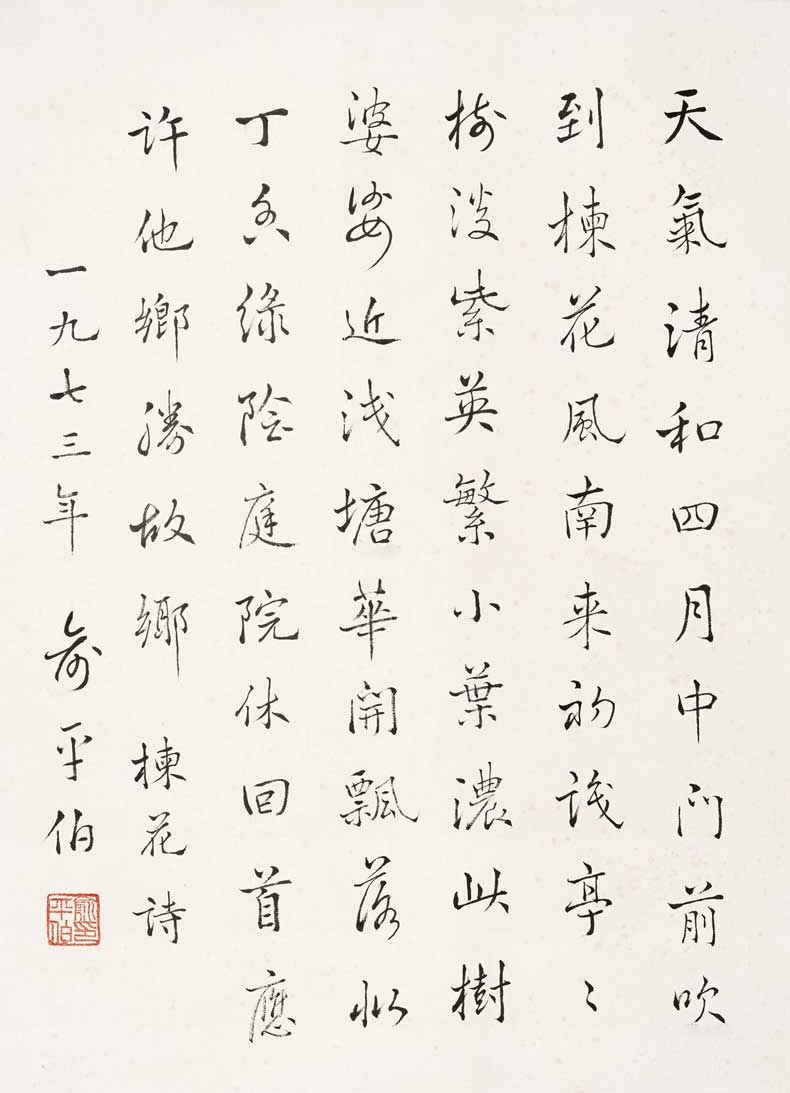 天氣清和四月中門前吹
到楝花風南来初識亭〻
樹淡紫英繁小葉濃此樹
婆娑近浅塘華開飄落似
丁香綠陰庭院休回首應
許他鄉勝故鄉 楝花詩
一九七三年 俞平伯
俞印平伯